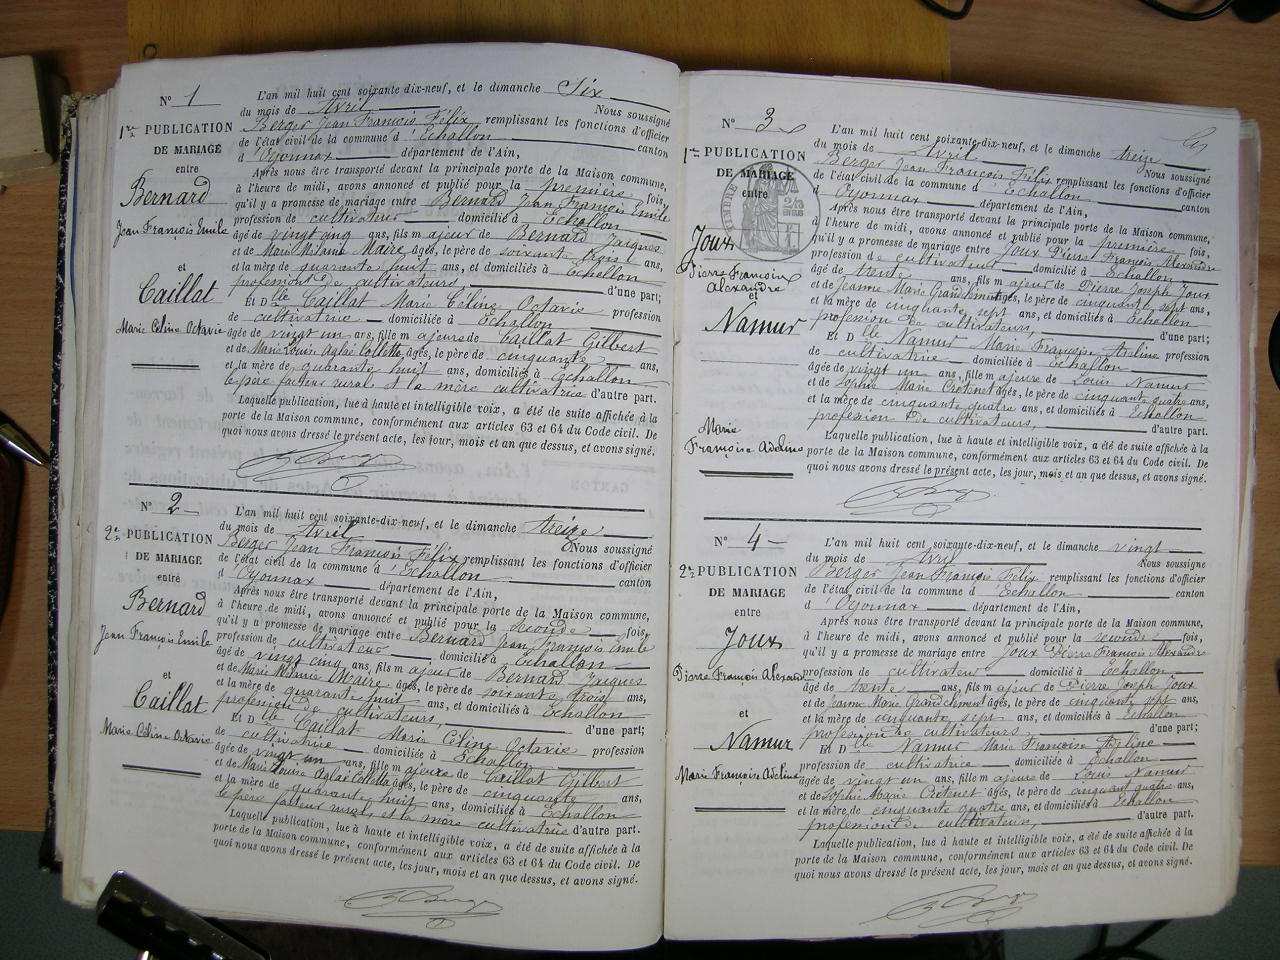 N° 1
1re PUBLICATION
DE MARIAGE
entre
Bernard
Jean François Emile
et
Caillat
Marie Céline Octavie
L'an mil huit cent soixante-dix-neuf, et le dimanche Six
du mois de Avril Nous soussigné
Berger Jean François Félix remplissant les fonctions d'officier
de l'état civil de la commune d'Echallon canton
d'Oyonnax département de l'Ain,
Après nous être transporté devant la principale porte de la Maison commune,
à l'heure de midi, avons annoncé et publié pour la première fois,
qu'il y a promesse de mariage entre Bernard Jean François Emile
profession de cultivateur domicilié à Echallon
âgé de vingt cinq ans, fils majeur de Bernard Jacques
et de Marie Mélanie Maire âgés, le père de soixante trois ans,
et la mère de quarante huit ans, et domiciliés à Echallon
profession de cultivateurs, d'une part;
Et Dlle Caillat Marie Céline Octavie profession
de cultivatrice domiciliée à Echallon
âgée de vingt un ans, fille majeure de Caillat Gilbert
et de Marie Louise Aglaé Collette âgés, le père de cinquante ans,
et la mère de quarante huit ans, domiciliés à Echallon
le père facteur rural et la mère cultivatrice d'autre part.
Laquelle publication, lue à haute et intelligible voix, a été de suite affichée à la
porte de la Maison commune, conformément aux articles 63 et 64 du Code civil. De
quoi nous avons dressé le présent acte, les jour, mois et an que dessus, et avons signé.
N° 2
2e PUBLICATION
DE MARIAGE
entre
Bernard
Jean François Emile
et
Caillat
Marie Céline Octavie
L'an mil huit cent soixante-dix-neuf, et le dimanche treize
du mois de Avril Nous soussigné
Berger Jean François Félix remplissant les fonctions d'officier
de l'état civil de la commune d'Echallon canton
d'Oyonnax département de l'Ain,
Après nous être transporté devant la principale porte de la Maison commune,
à l'heure de midi, avons annoncé et publié pour la seconde fois,
qu'il y a promesse de mariage entre Bernard Jean François Emile
profession de cultivateur domicilié à Echallon
âgé de vingt cinq ans, fils majeur de Bernard Jacques
et de Marie Mélanie Maire âgés, le père de soixante trois ans,
et la mère de quarante huit ans, et domiciliés à Echallon
profession de cultivateurs, d'une part;
Et Dlle Caillat Marie Céline Octavie profession
de cultivatrice domiciliée à Echallon
âgée de vingt un ans, fille majeure de Caillat Gilbert
et de Marie Louise Aglaé Collette âgés, le père de cinquante ans,
et la mère de quarante huit ans, domiciliés à Echallon
le père facteur rural et la mère cultivatrice d'autre part.
Laquelle publication, lue à haute et intelligible voix, a été de suite affichée à la
porte de la Maison commune, conformément aux articles 63 et 64 du Code civil. De
quoi nous avons dressé le présent acte, les jour, mois et an que dessus, et avons signé.
N° 3
1re PUBLICATION
DE MARIAGE
entre
Joux
Pierre François
Alexandre
et
Namur
Marie
Françoise Adeline
L'an mil huit cent soixante-dix-neuf, et le dimanche treize
du mois de Avril Nous soussigné
Berger Jean François Félix remplissant les fonctions d'officier
de l'état civil de la commune d'Echallon canton
d'Oyonnax département de l'Ain,
Après nous être transporté devant la principale porte de la Maison commune,
à l'heure de midi, avons annoncé et publié pour la première fois,
qu'il y a promesse de mariage entre Joux Pierre François Alexandre
profession de cultivateur domicilié à Echallon
âgé de trente ans, fils majeur de Pierre Joseph Joux
et de Jeanne Marie Grandclément âgés, le père de cinquante sept ans,
et la mère de cinquante sept ans, et domiciliés à Echallon
profession de cultivateurs, d'une part;
Et Dlle Namur Marie Françoise Adeline profession
de cultivatrice domiciliée à Echallon
âgée de vingt un ans, fille majeure de Louis Namur
et de Sophie Marie Cretinet âgés, le père de cinquante quatre ans,
et la mère de cinquante quatre ans, et domiciliés à Echallon
profession de cultivateurs, d'autre part.
Laquelle publication, lue à haute et intelligible voix, a été de suite affichée à la
porte de la Maison commune, conformément aux articles 63 et 64 du Code civil. De
quoi nous avons dressé le présent acte, les jour, mois et an que dessus, et avons signé.
N° 4
2e PUBLICATION
DE MARIAGE
entre
Joux
Pierre François Alexandre
et
Namur
Marie Françoise Adeline
L'an mil huit cent soixante-dix-neuf, et le dimanche vingt
du mois de Avril Nous soussigné
Berger Jean François Félix remplissant les fonctions d'officier
de l'état civil de la commune d'Echallon canton
d'Oyonnax département de l'Ain,
Après nous être transporté devant la principale porte de la Maison commune,
à l'heure de midi, avons annoncé et publié pour la seconde fois,
qu'il y a promesse de mariage entre Joux Pierre François Alexandre
profession de cultivateur domicilié à Echallon
âgé de trente ans, fils majeur de Pierre Joseph Joux
et de Jeanne Marie Grandclément âgés, le père de cinquante sept ans,
et la mère de cinquante sept ans, et domiciliés à Echallon
profession de cultivateurs, d'une part;
Et Dlle Namur Marie Françoise Adeline
profession de cultivatrice domiciliée à Echallon
âgée de vingt un ans, fille majeure de Louis Namur
et de Sophie Marie Cretinet âgés, le père de cinquante quatre ans,
et la mère de cinquante quatre ans, et domiciliés à Echallon
profession de cultivateurs, d'autre part.
Laquelle publication, lue à haute et intelligible voix, a été de suite affichée à la
porte de la Maison commune, conformément aux articles 63 et 64 du Code civil. De
quoi nous avons dressé le présent acte, les jour, mois et an que dessus, et avons signé.